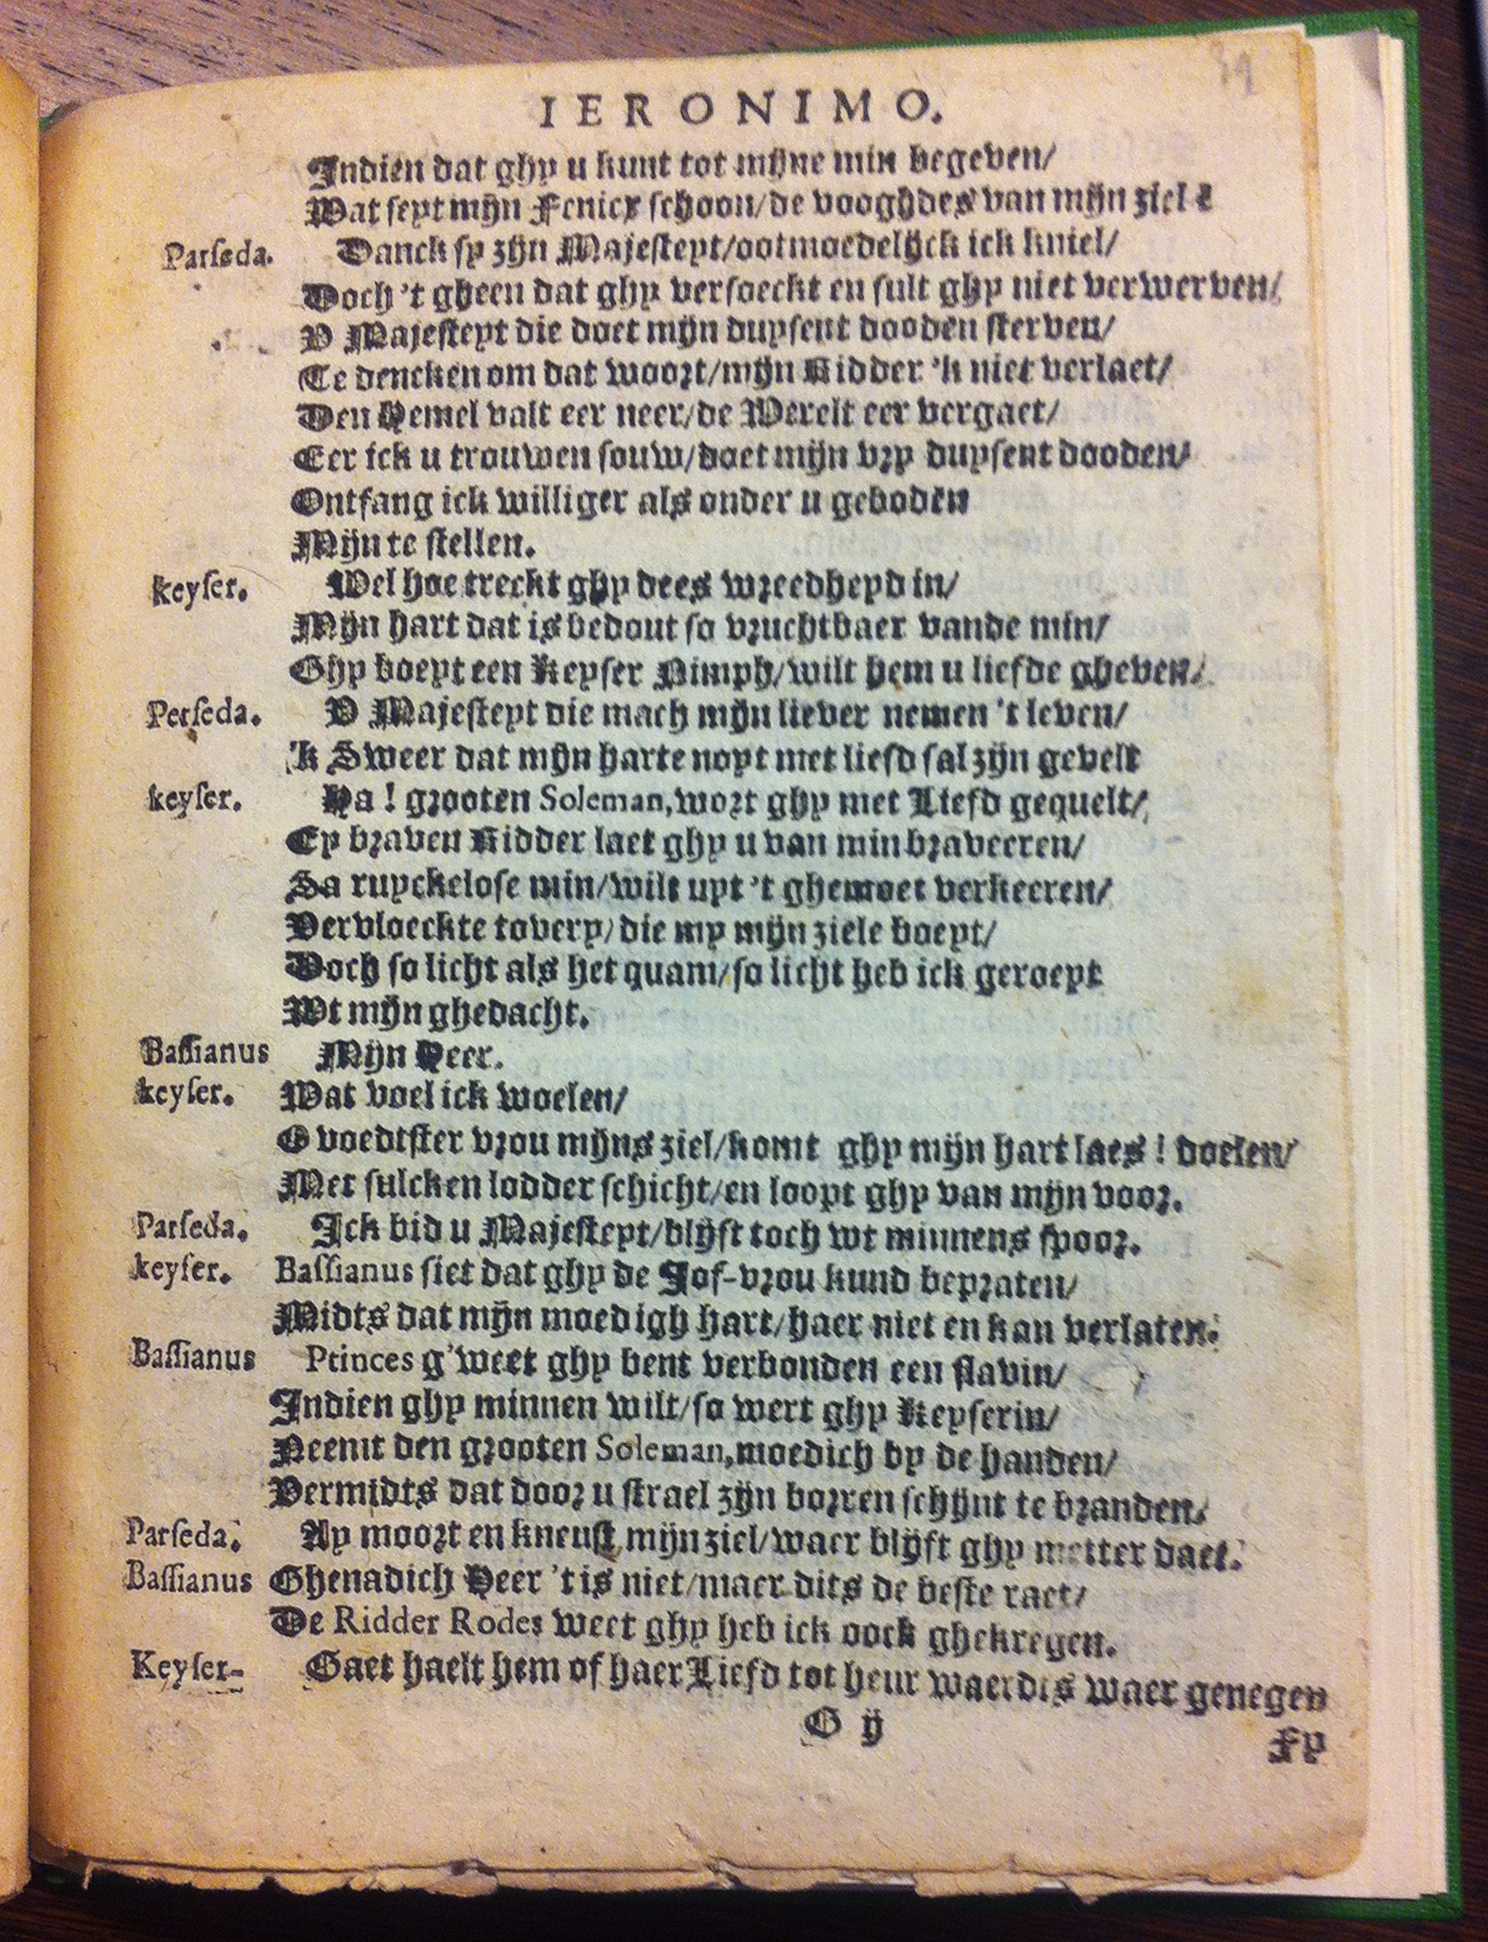 IERONIMO.
Indien dat ghy u kunt tot mijne min begeven/
Wat seyt mijn Fenicx schoon/de vooghdes van mijn ziel?
Parseda. Danck sy zijn Majesteyt/ootmoedelijck ick kniel/
Doch 't gheen dat ghy versoeckt en sult ghy niet verwerven/
V Majesteyt die doet mijn duysent dooden sterven/
Te dencken om dat woort/mijn Ridder 'k niet verlaet/
Den Hemel valt eer neer/de Werelt eer vergaet/
Eer ick u trouwen souw/doet mijn vry duysent dooden/
Ontfang ick williger als onder u geboden
Mijn te stellen.
keyser. Wel hoe treckt ghy dees wreedheyd in/
Mijn hart dat is bedout so vruchtbaer vande min/
Ghy boeyt een Keyser Nimph/wilt hem u liefde gheven/
Perseda. V Majesteyt die mach mijn liever nemen 't leven/
'k Sweer dat mijn harte noyt met liefd sal zijn gevelt
keyser. Ha! grooten Soleman, wort ghy met Liefd gequelt/
Ey braven Ridder laet ghy u van min braveeren/
Sa ruyckelose min/wilt uyt 't ghemoet verkeeren/
Vervloeckte tovery/die my mijn ziele boeyt/
Doch so licht als het quam/so licht heb ick geroeyt
Wt mijn ghedacht.
Bassianus Mijn Heer.
keyser. Wat voel ick woelen/
O voedtster vrou mijns ziel/komt ghy mijn hart laes! doelen/
Met sulcken lodder schicht/en loopt ghy van mijn voor.
Parseda. Ick bid u Majesteyt/blijft toch wt minnens spoor.
keyser. Bassianus siet dat ghy de Jof-vrou kund bepraten/
Midts dat mijn moedigh hart/haer niet en kan verlaten.
Bassianus Ptinces g'weet ghy bent verbonden een slavin/
Indien ghy minnen wilt/so wert ghy Keyserin/
Neemt den grooten Soleman, moedich by de handen/
Vermidts dat door u strael zijn borren schijnt te branden.
Parseda. Ay moort en kneust mijn ziel/waer blijft ghy metter daet.
Bassianus Ghenadich Heer 't is niet/maer dits de beste raet/
De Ridder Rodes weet ghy heb ick oock ghekregen.
Keyser- Gaet haelt hem of haer Liefd tot heur waerdts waer genegen
G ij
Fy